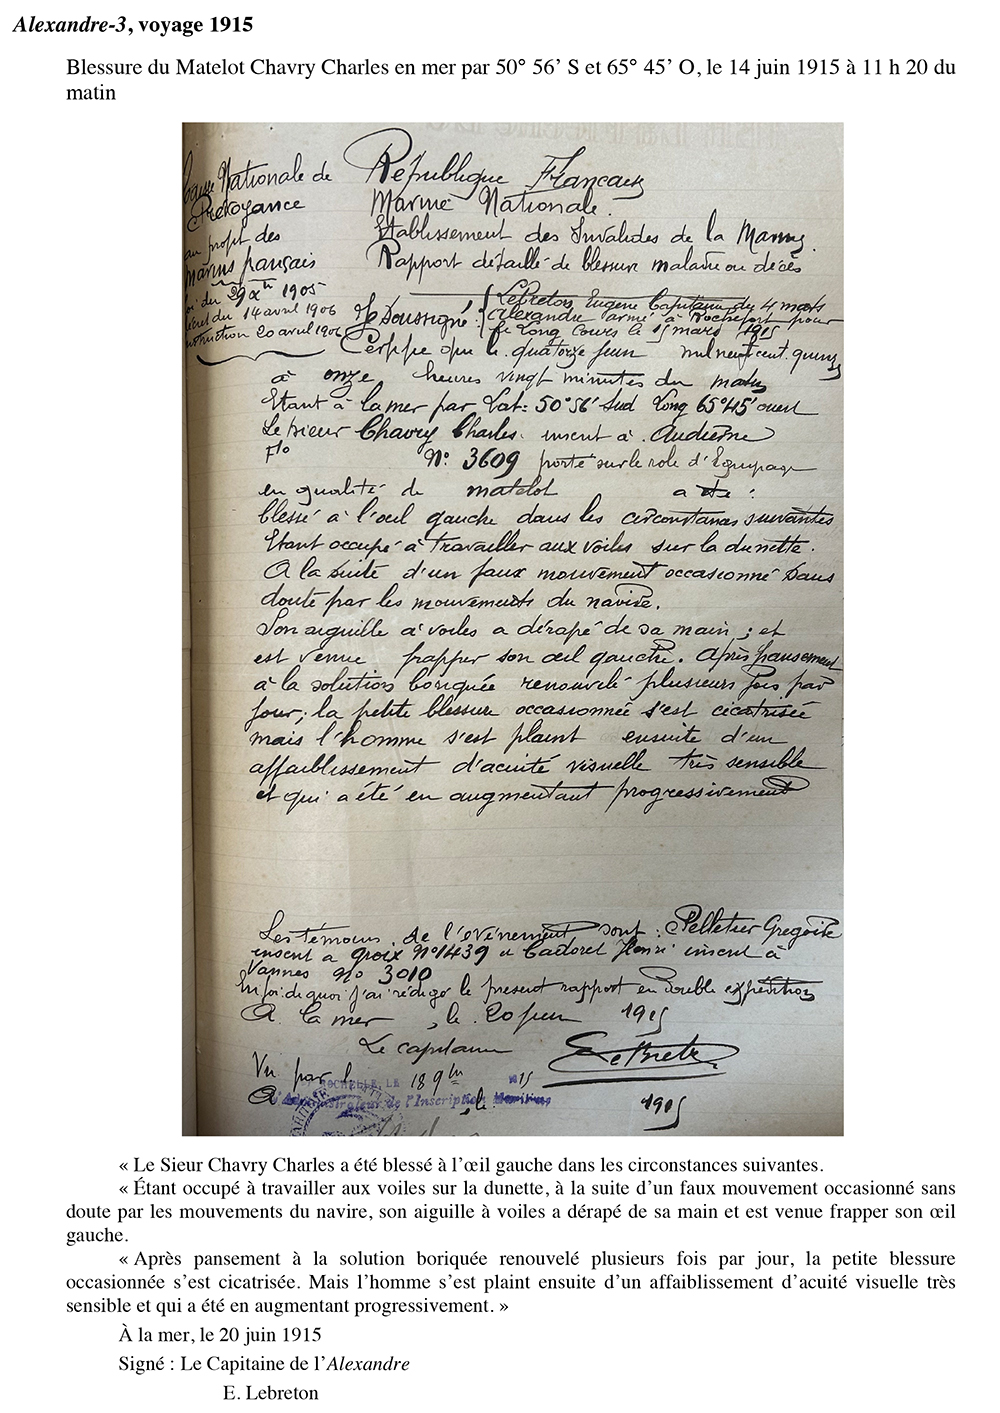 Alexandre-3, voyage 1915
Blessure du Matelot Chavry Charles en mer par 50° 56’ S et 65° 45’ O, le 14 juin 1915 à 11 h 20 du
matin
Caisse Nationale de
Prévoyance
au profit des
Marins français
loi du 29 Xbre 1905
décret du 14 avril 1906
instruction 20 avril 1906
République Française
Marine Nationale.
Etablissement des Invalides de la Marine
Rapport détaillé de blessure maladie ou décès
Je Soussigné : LeBreton Eugène Capitaine du 4 mats
Alexandre armé à Rochefort pour
le Long Cours le 15 mars 1915
Certifie que le quatorze juin mil neuf cent quinze
à onze heures vingt minutes du matin
Etant à la mer par Lat: 50°56' Sud Long 65°45' ouest
Le sieur Chavry Charles inscrit à Audierne
Flo N° 3609 porté sur le role d'Equipage
en qualité de matelot a été :
blessé à l'œil gauche dans les circonstances suivantes
Etant occupé à travailler aux voiles sur la dunette.
A la suite d'un faux mouvement occasionné sans
doute par les mouvements du navire.
Son aiguille à voiles a dérapé de sa main ; et
est venue frapper son œil gauche. Après pansement
à la solution boriquée renouvelé plusieurs fois par
jour ; la petite blessure occasionnée s'est cicatrisée
mais l'homme s'est plaint ensuite d'un
affaiblissement d'acuité visuelle très sensible
et qui a été en augmentant progressivement
Les témoins de l'événement sont : Pelletier Gregoire
inscrit a Groix N°1439 et Cadoret Henri inscrit à
Vannes No 3010
En foi de quoi j'ai rédigé le present rapport en double expédition
A la mer, le 20 juin 1915
Le capitaine LeBreton
Vu par l 18 9bre 15
ROCHELLE, LE
L'Administrateur de l'Inscription Maritime
A , le 1915
« Le Sieur Chavry Charles a été blessé à l’œil gauche dans les circonstances suivantes.
« Étant occupé à travailler aux voiles sur la dunette, à la suite d’un faux mouvement occasionné sans
doute par les mouvements du navire, son aiguille à voiles a dérapé de sa main et est venue frapper son œil
gauche.
« Après pansement à la solution boriquée renouvelé plusieurs fois par jour, la petite blessure
occasionnée s’est cicatrisée. Mais l’homme s’est plaint ensuite d’un affaiblissement d’acuité visuelle très
sensible et qui a été en augmentant progressivement. »
À la mer, le 20 juin 1915
Signé : Le Capitaine de l’Alexandre
E. Lebreton